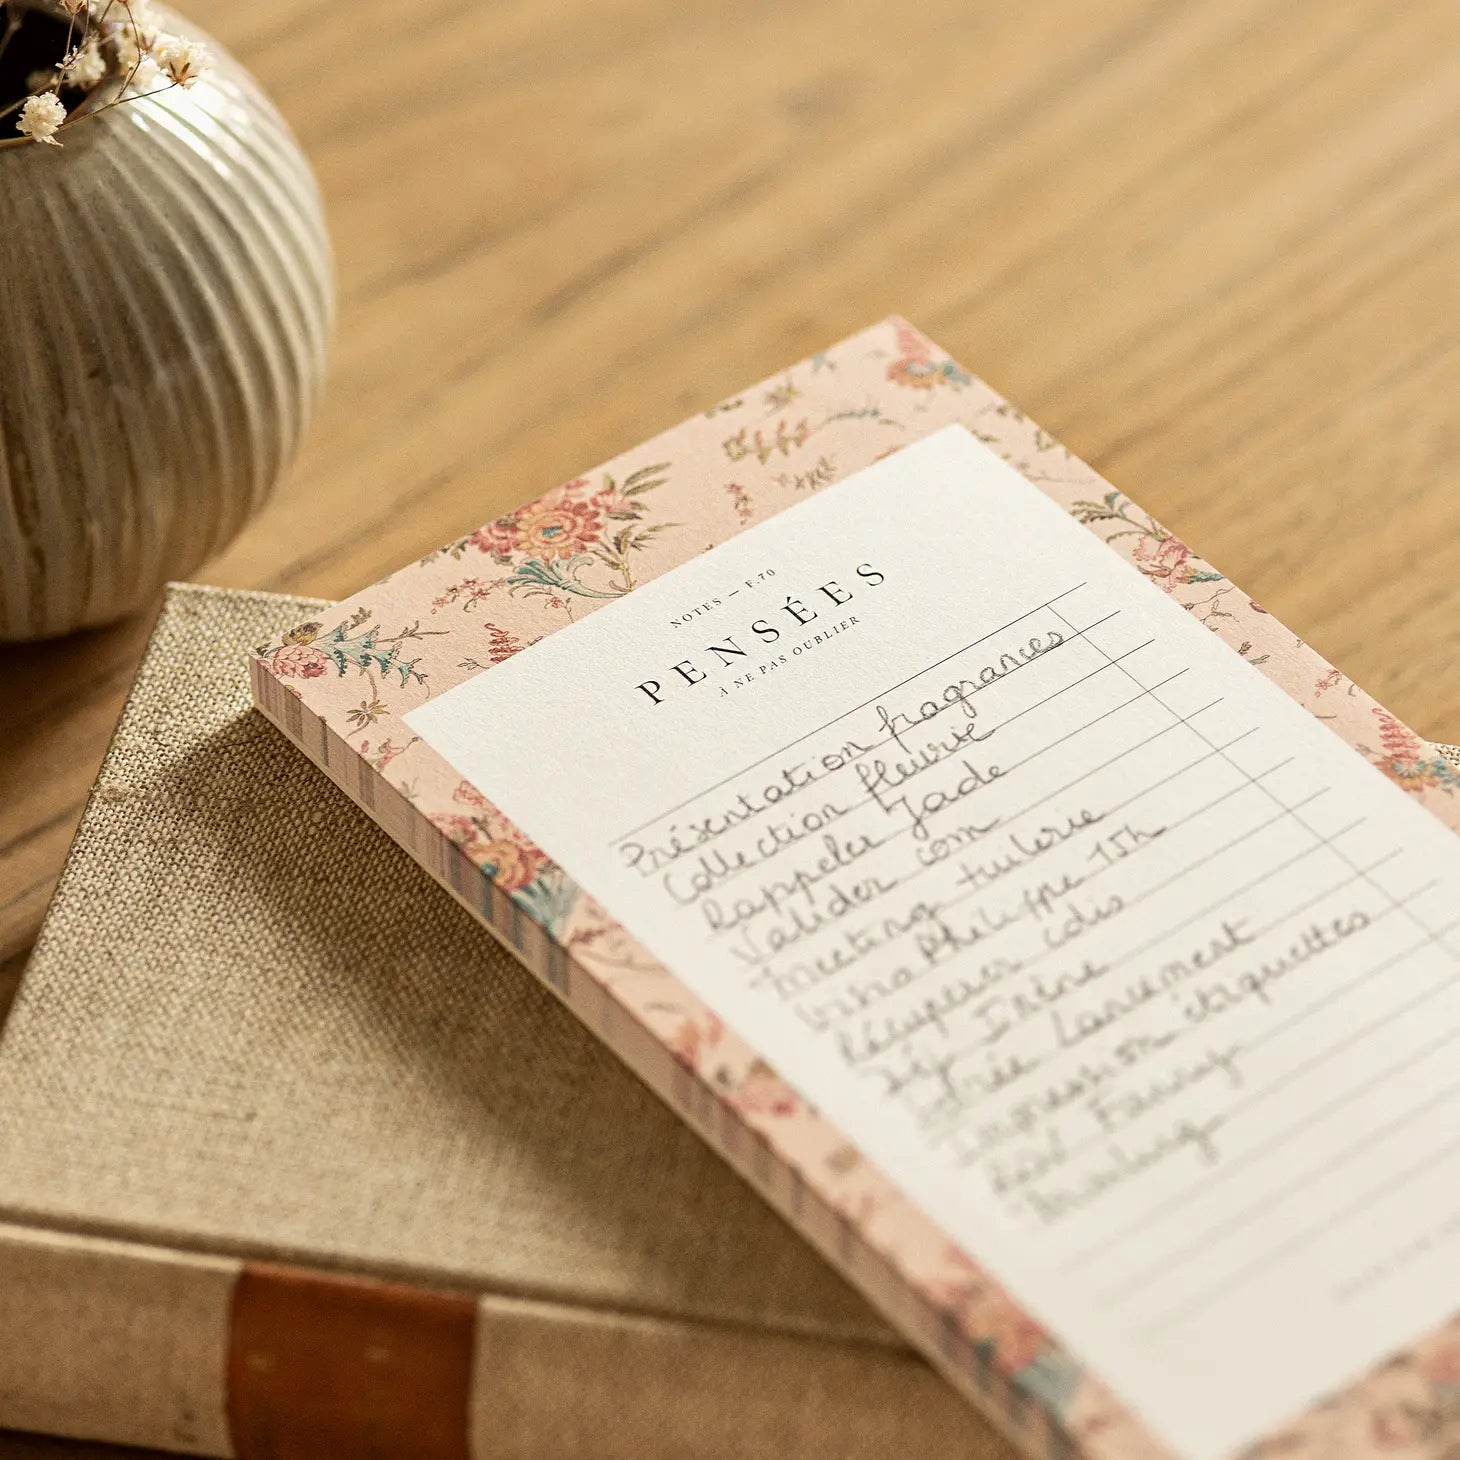 NOTES — F.70
PENSÉES
À NE PAS OUBLIER
Présentation fragrances
Collection fleurie
Rappeler Jade
Valider com
Meeting tuilerie
Philippe 15h
Récupérer colis
Irène
lancement
Impression étiquettes
RDV Fanny
Mailing